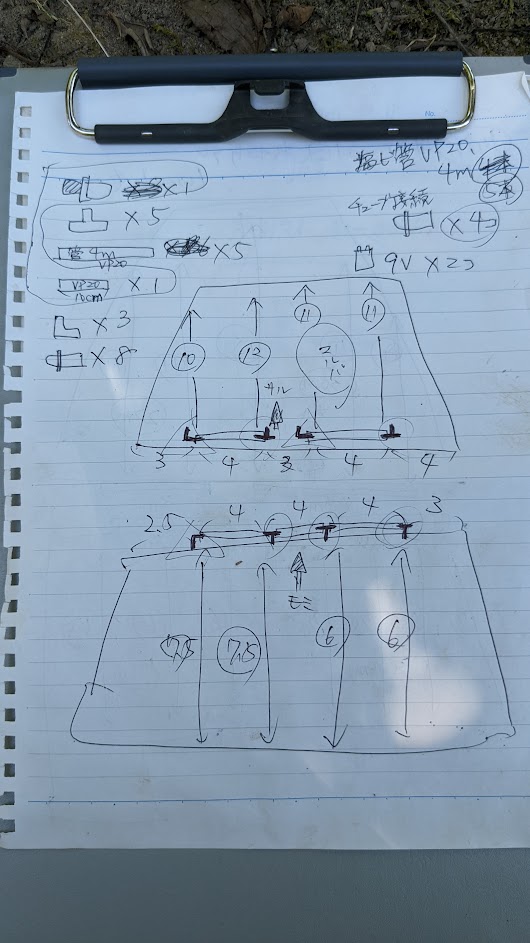 塩ビ管 VP20
4m
5本
×1
チューブ接続
×5
×4コ
管 4m
VP20
×5
9V ×2コ
VP20
10cm
×1
×3
×8
11
11
10
12
3
4
3
4
4
2.5
4
4
4
3
7.5
7.5
6
6